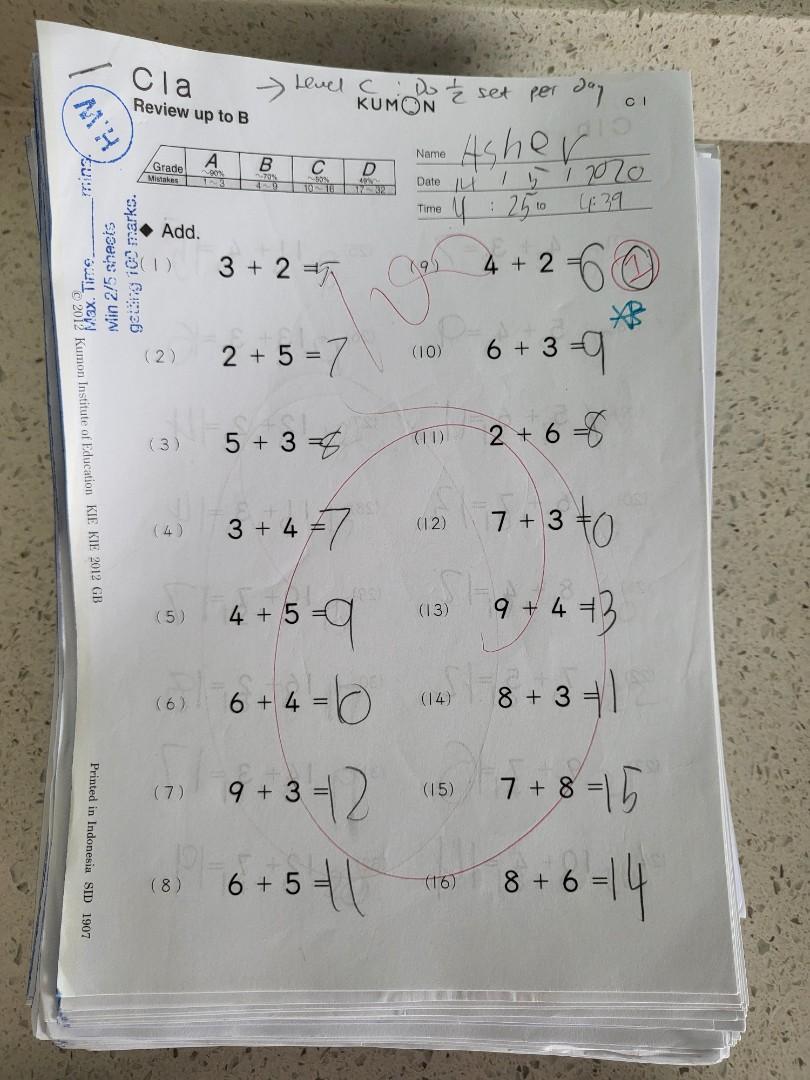 C1a → Level C : Do ½ set per day
Review up to B KUMON C 1
Grade A ~90% B ~70% C ~50% D 49%~
Mistakes 1~3 4~9 10~16 17~32
Name Asher
Date 14 / 5 / 2020
Time 4 : 25 to 4:39
Max. Time mins.
Min 2/5 sheets
getting 100 marks.
◆ Add.
100
(1) 3 + 2 = 5
(2) 2 + 5 = 7
(3) 5 + 3 = 8
(4) 3 + 4 = 7
(5) 4 + 5 = 9
(6) 6 + 4 = 10
(7) 9 + 3 = 12
(8) 6 + 5 = 11
(9) 4 + 2 = 6
(10) 6 + 3 = 9
(11) 2 + 6 = 8
(12) 7 + 3 = 10
(13) 9 + 4 = 13
(14) 8 + 3 = 11
(15) 7 + 8 = 15
(16) 8 + 6 = 14
© 2012 Kumon Institute of Education KIE KIE 2012 GB
Printed in Indonesia SID 1907